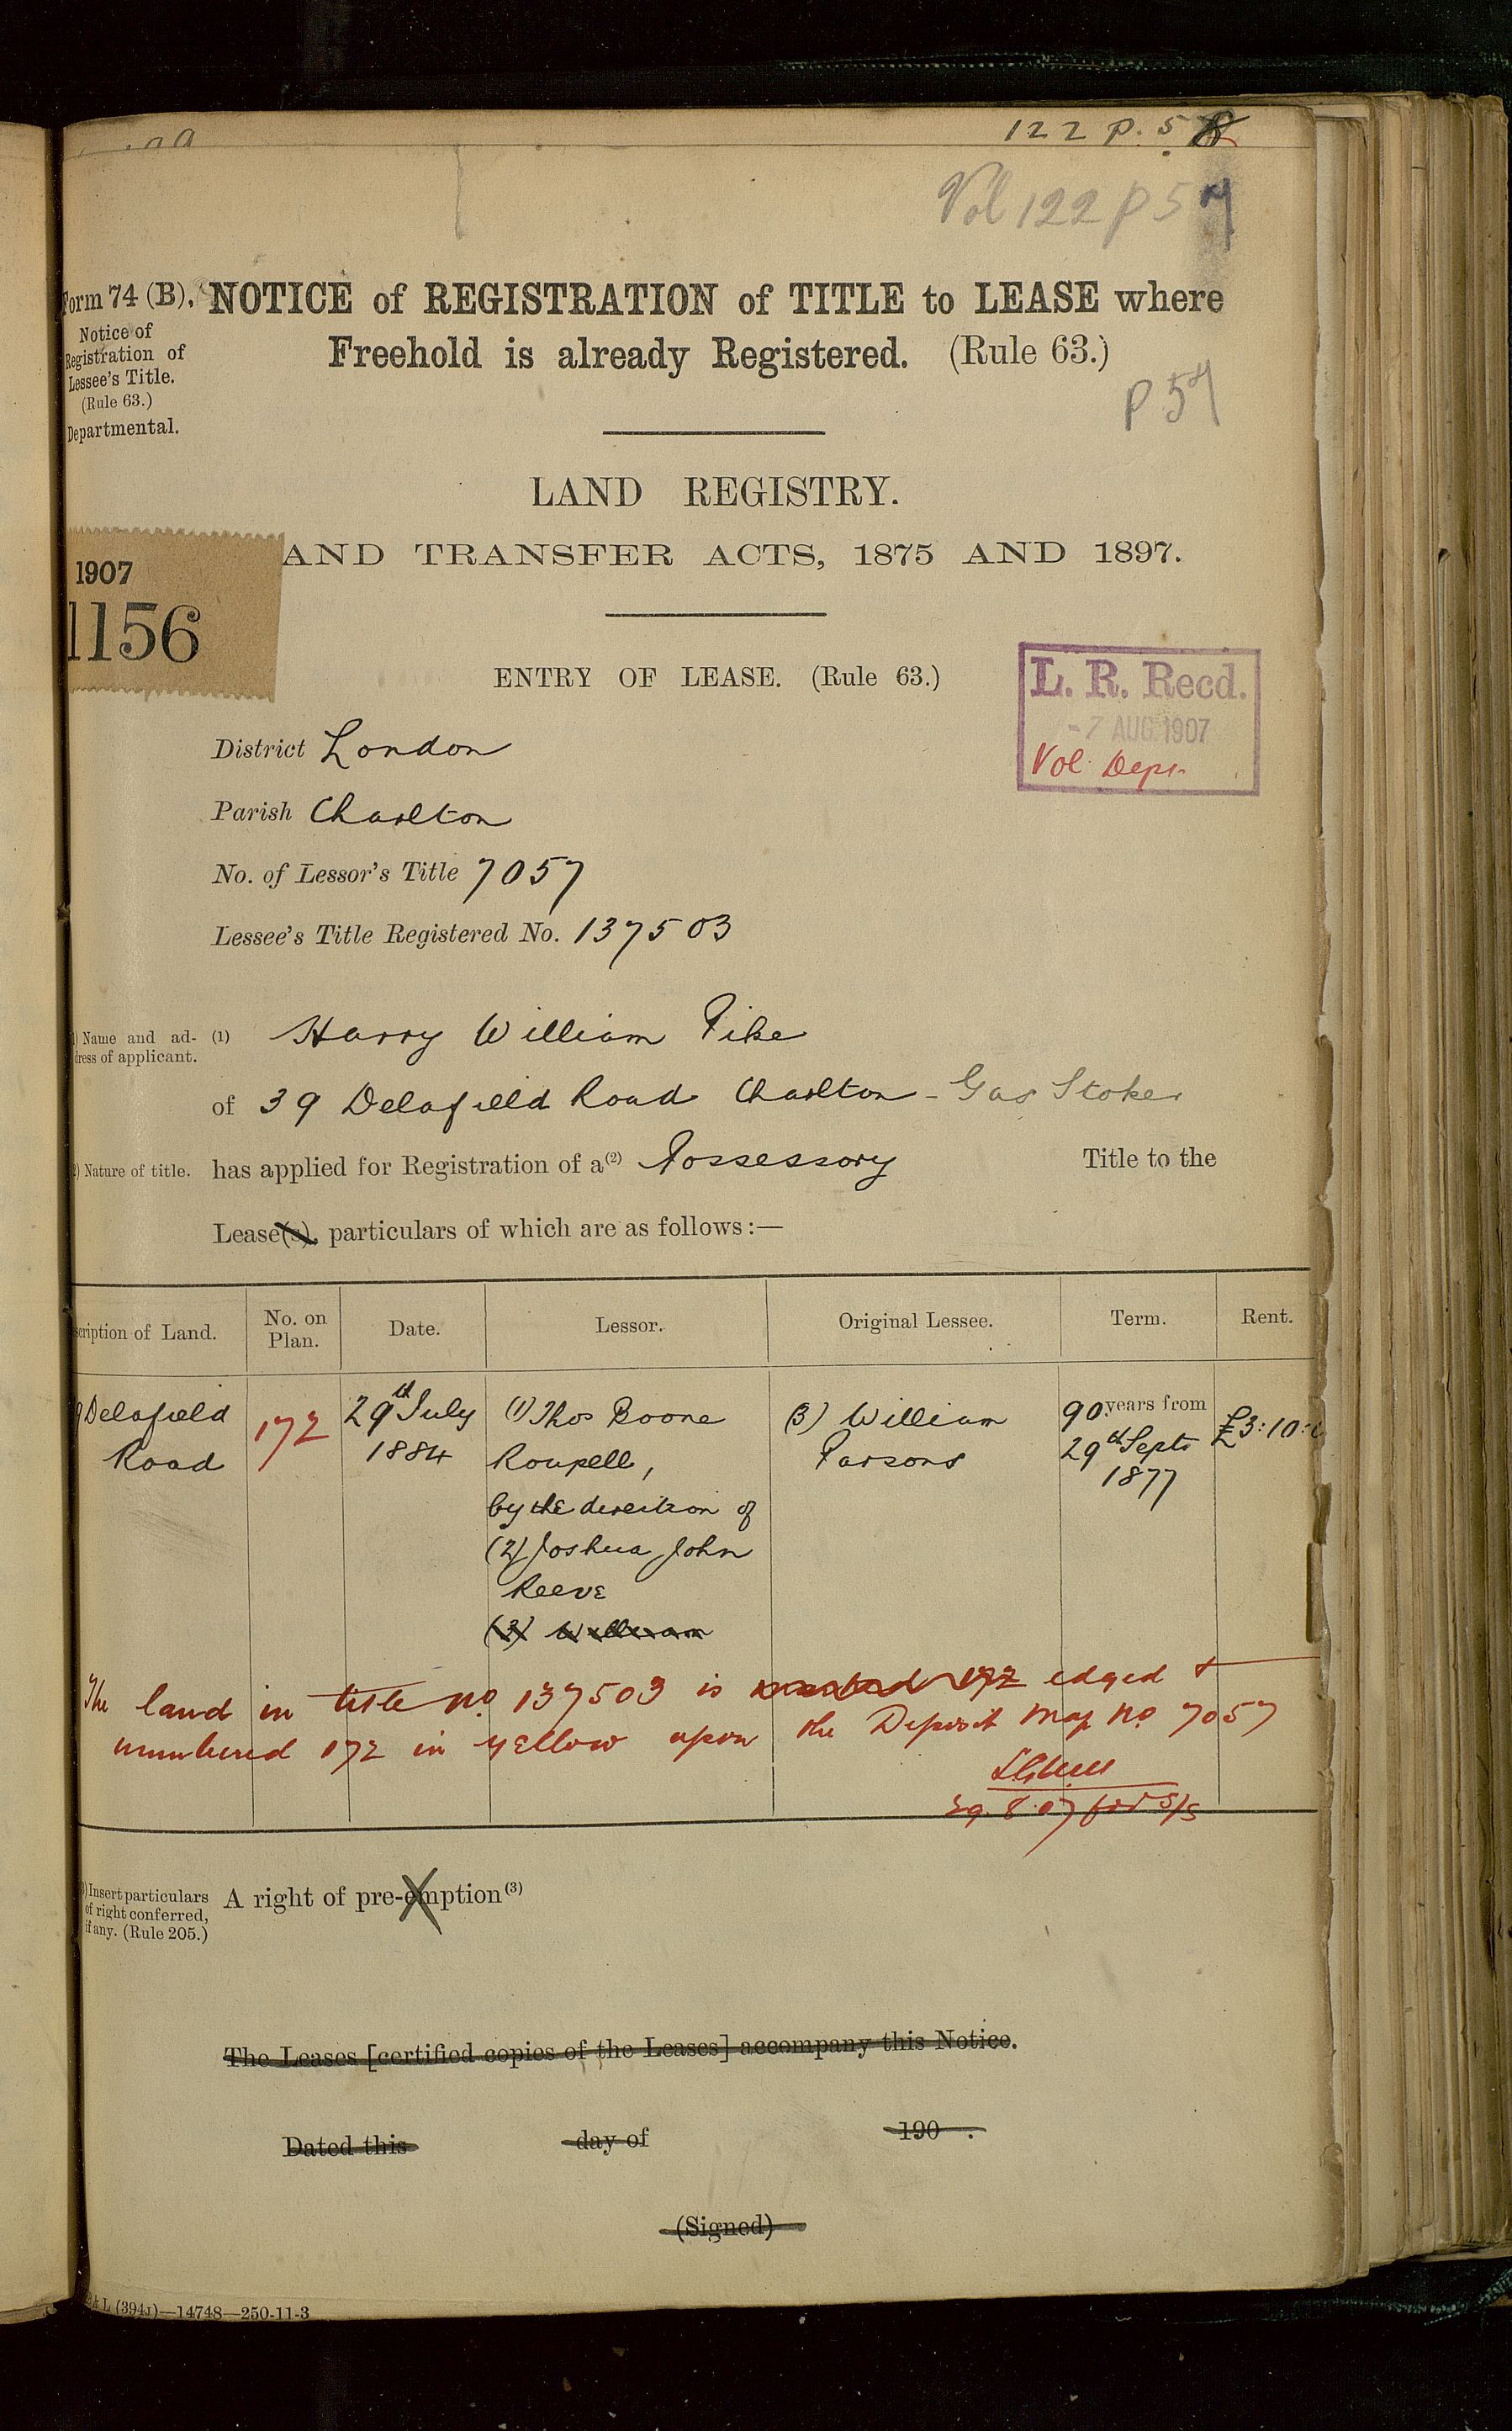 122 p. 5
Vol 122 p 57
Form 74 (B).
Notice of
Registration of
Lessee's Title.
(Rule 63.)
Departmental.
NOTICE of REGISTRATION of TITLE to LEASE where
Freehold is already Registered. (Rule 63.)
p 57
LAND REGISTRY.
AND TRANSFER ACTS, 1875 AND 1897.
1907
1156
ENTRY OF LEASE. (Rule 63.)
L. R. Recd.
-7 AUG 1907
Vol. Dept.
District London
Parish Charlton
No. of Lessor's Title 7057
Lessee's Title Registered No. 137503
) Name and ad-
dress of applicant.
(1) Harry William Pike
of 39 Delafield Road Charlton - Gas Stoker
) Nature of title.
has applied for Registration of a(2) Possessory Title to the
Lease(s), particulars of which are as follows:—
scription of Land.
No. on
Plan.
Date.
Lessor.
Original Lessee.
Term.
Rent.
9 Delafield
Road
172
29th July
1884
(1) Thos Boone
Roupell,
by the direction of
(2) Joshua John
Reeve
(3) William
(3) William
Parsons
90 years from
29th Septr
1877
£3:10:
The land in title no. 137503 is 172 edged +
numbered 172 in yellow upon the Deposit Map No. 7057
29.8.07 for S/S
) Insert particulars
of right conferred,
if any. (Rule 205.)
A right of pre-emption(3)
The Leases [certified copies of the Leases] accompany this Notice.
Dated this day of 190 .
(Signed)
& L (394J)—14748—250-11-3